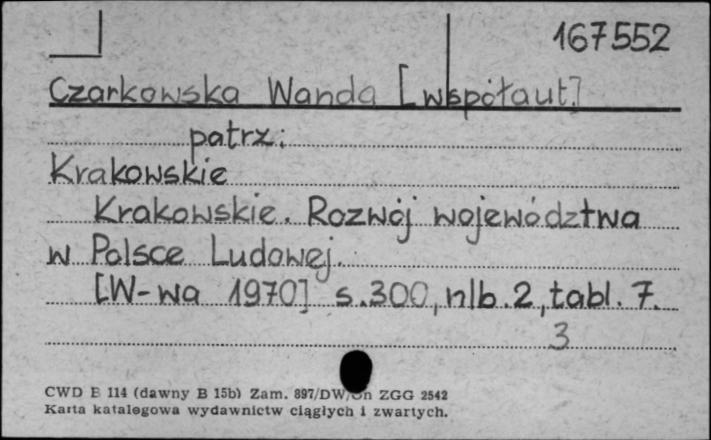 167552
Czarkowska Wanda [współaut.]
patrz:
Krakowskie
Krakowskie. Rozwój województwa
w Polsce Ludowej.
[W-wa 1970] s.300, nlb.2, tabl.7.
3
CWD E 114 (dawny B 15b) Zam. 897/DW/Dn ZGG 2542
Karta katalogowa wydawnictw ciągłych i zwartych.